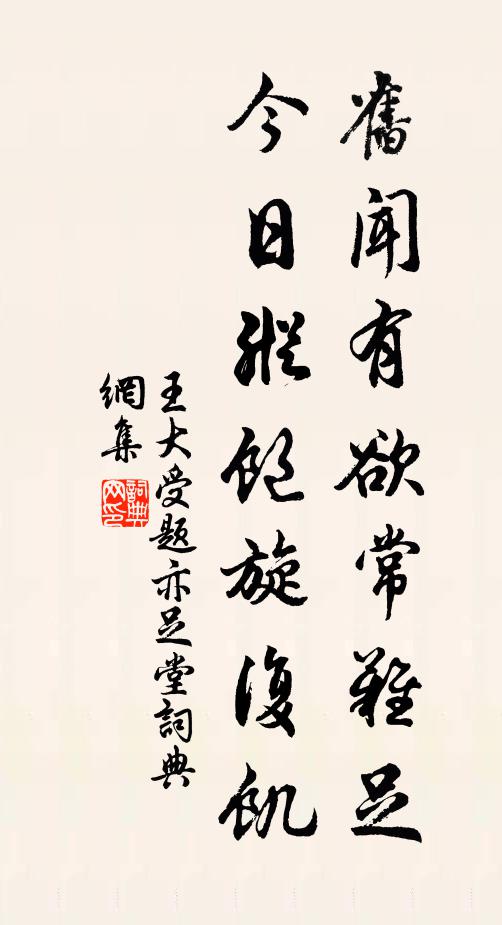 舊聞有欲常難足
今日縱飽旋復飢
王大受題亦足堂詞典
網集
詞典
网印